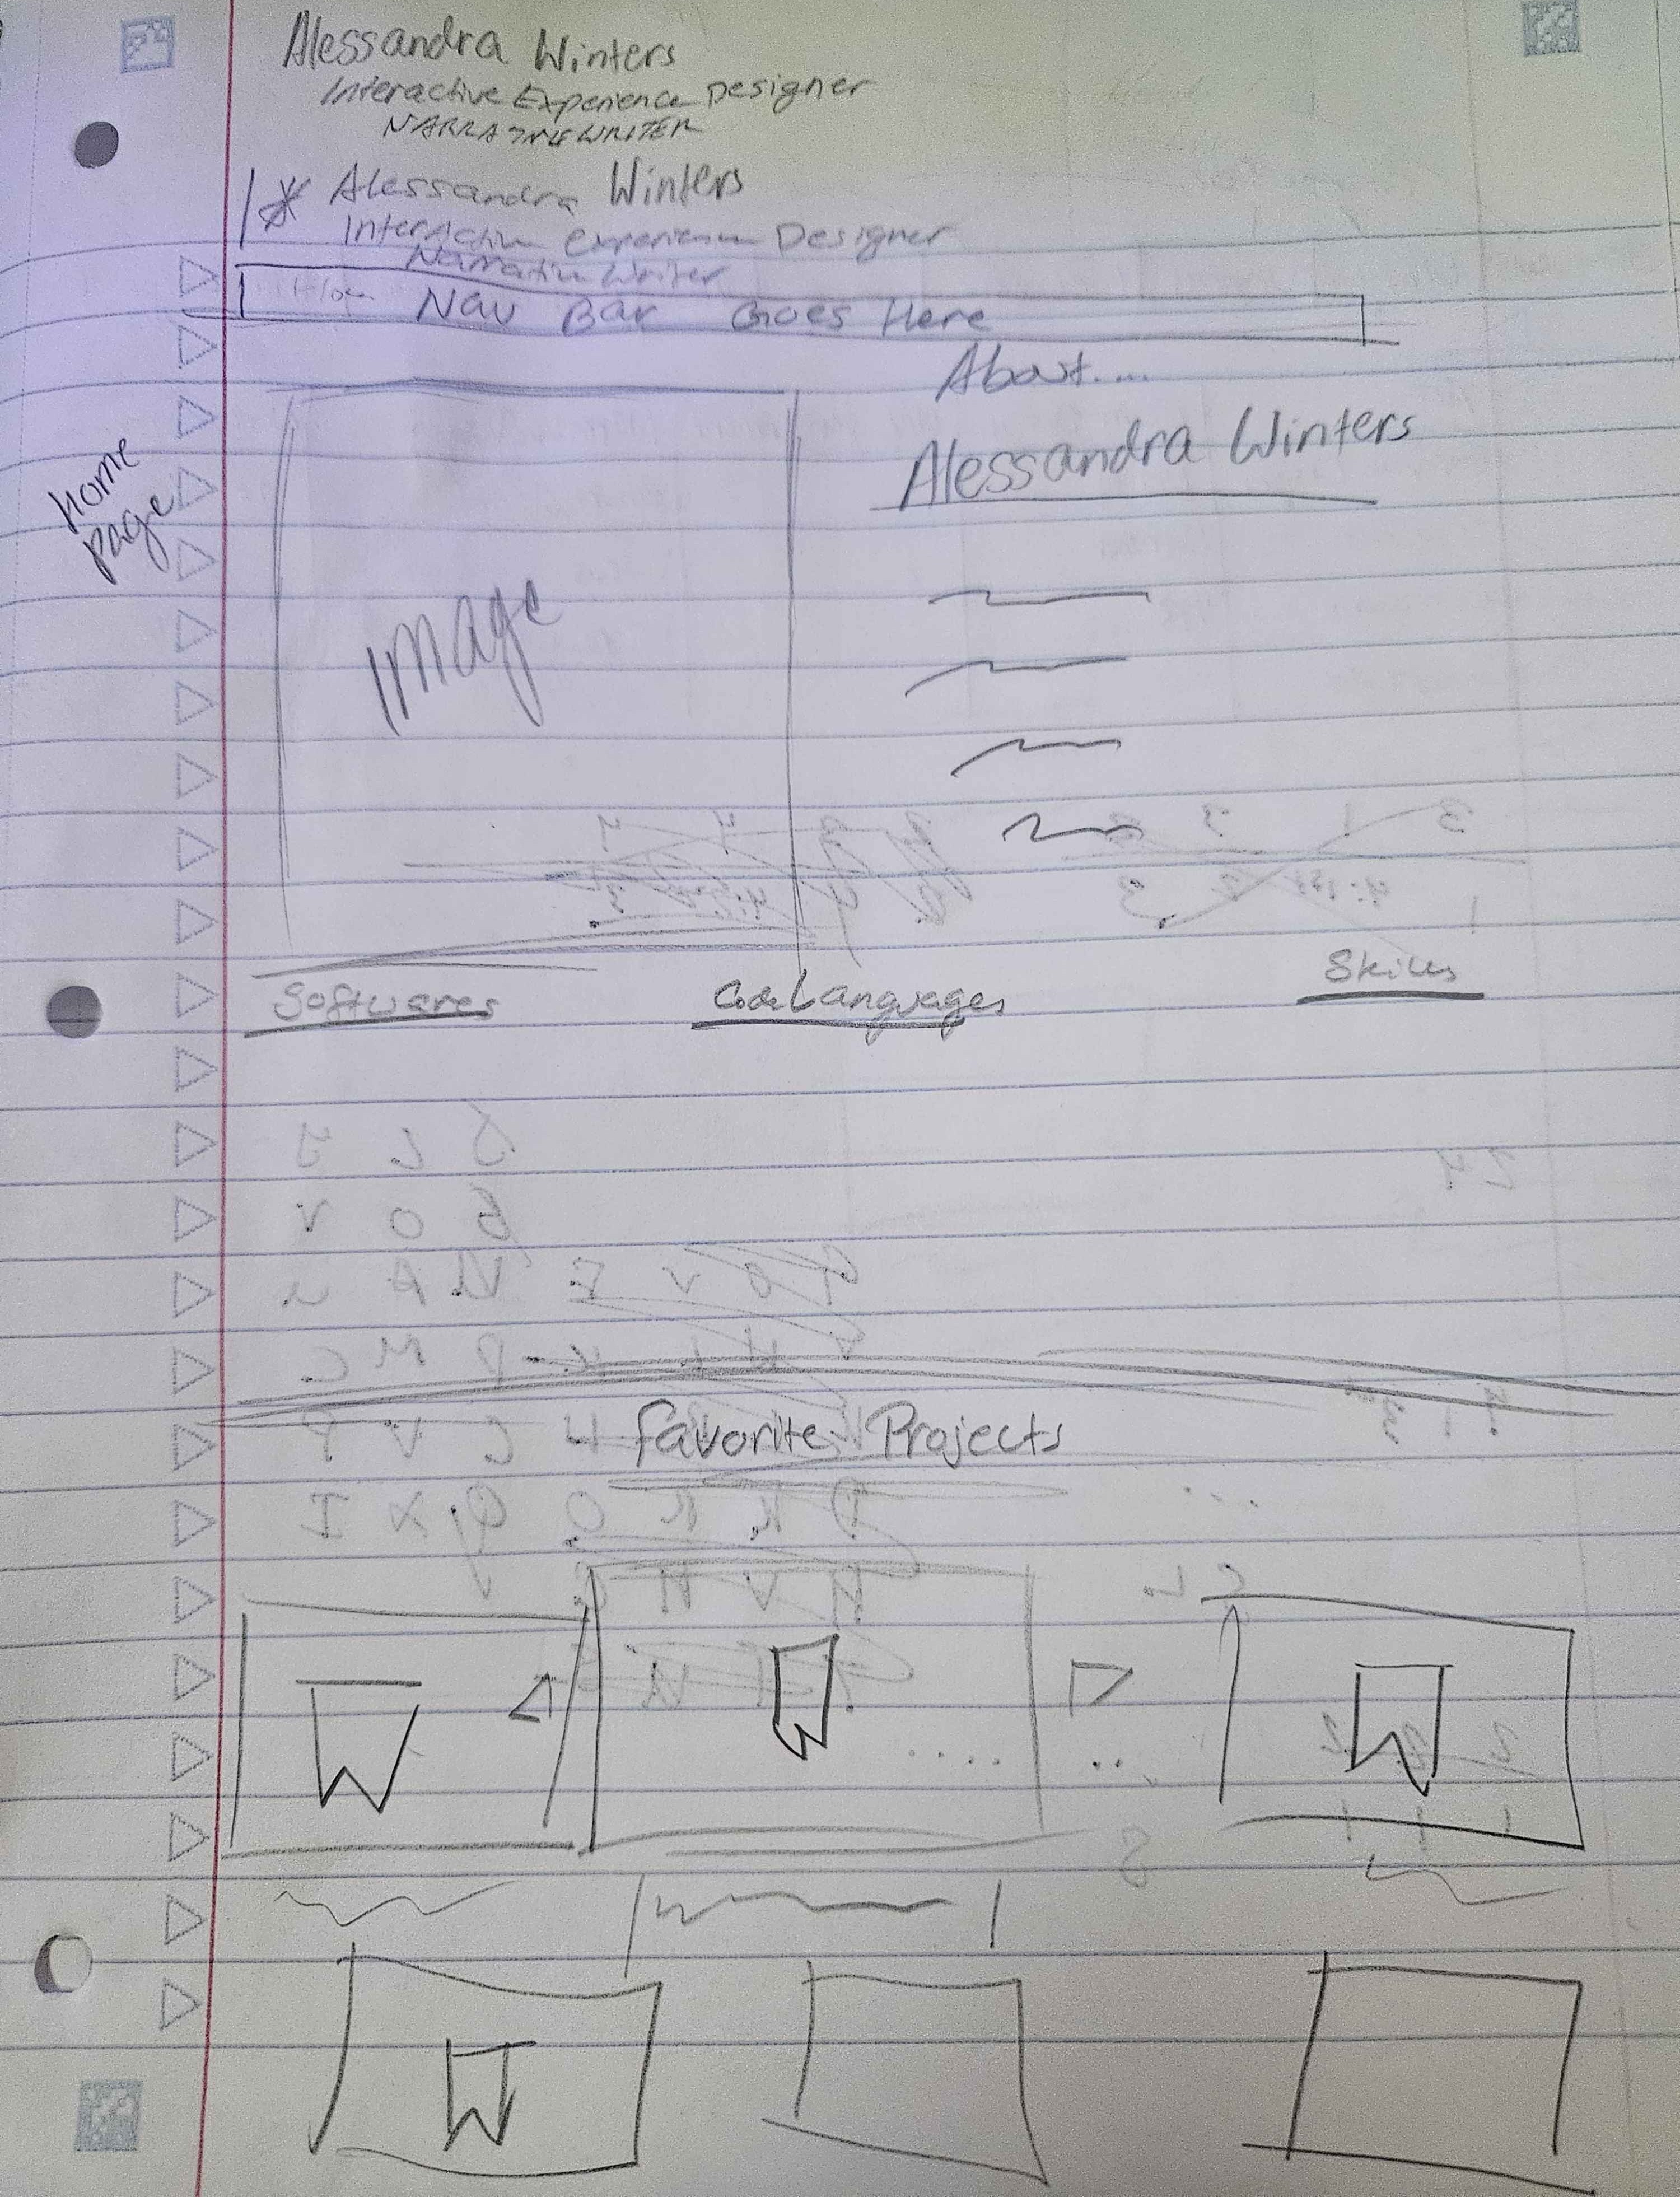 Alessandra Winters
Interactive Experience Designer
NARRATIVE WRITER
* Alessandra Winters
Interactive Experience Designer
Narrative Writer
Nav Bar Goes Here
About....
Alessandra Winters
home
page
Image
Softwares
Code Languages
Skills
Favorite Projects